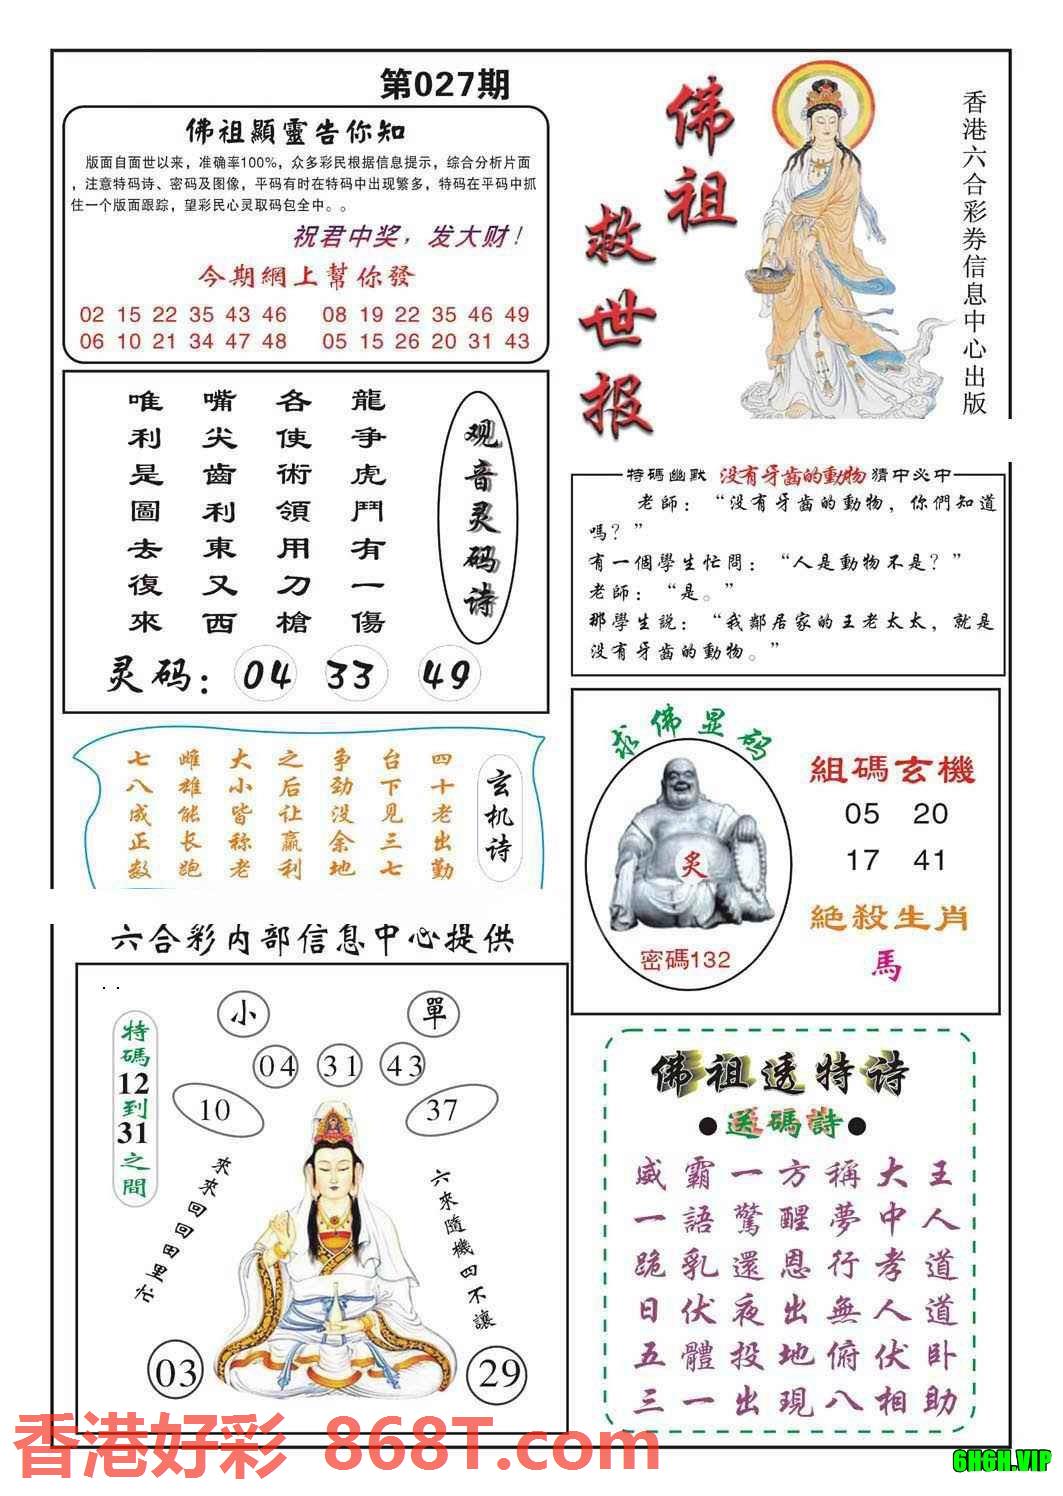 第027期
佛祖顯靈告你知
版面自面世以来，准确率100%，众多彩民根据信息提示，综合分析片面
，注意特码诗、密码及图像，平码有时在特码中出现繁多，特码在平码中抓
住一个版面跟踪，望彩民心灵取码包全中。。
祝君中奖，发大财！
今期網上幫你發
02 15 22 35 43 46 08 19 22 35 46 49
06 10 21 34 47 48 05 15 26 20 31 43
佛祖
救世报
香港六合彩券信息中心出版
观音灵码诗
龍争虎鬥有一傷
各使術領用刀槍
嘴尖齒利東又西
唯利是圖去復來
灵码：04 33 49
特碼幽默 没有牙齒的動物 猜中必中
老師：“没有牙齒的動物，你們知道
嗎？”
有一個學生忙問：“人是動物不是？”
老師：“是。”
那學生説：“我鄰居家的王老太太，就是
没有牙齒的動物。”
玄机诗
四十老出勤
台下见三七
争劲没余地
之后让赢利
大小皆称老
雌雄能长跑
七八成正数
求佛显码
炙
密碼132
組碼玄機
05 20
17 41
絶殺生肖
馬
六合彩内部信息中心提供
小
單
04 31 43
10
37
特碼12到31之間
來來回回田里忙
六來隨機四不讓
03
29
佛祖透特诗
●送碼詩●
威霸一方稱大王
一語驚醒夢中人
跪乳還恩行孝道
日伏夜出無人道
五體投地俯伏卧
三一出現八相助
香港好彩 868T.com
6H6H.VIP